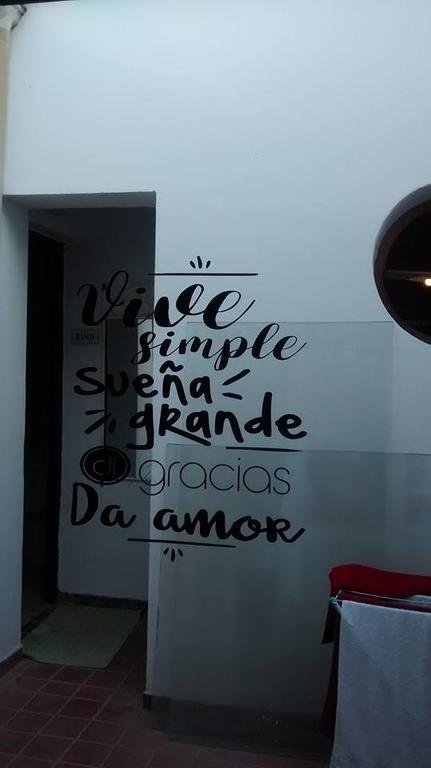 Vive
simple
sueña
grande
di gracias
Da amor
BAÑOS